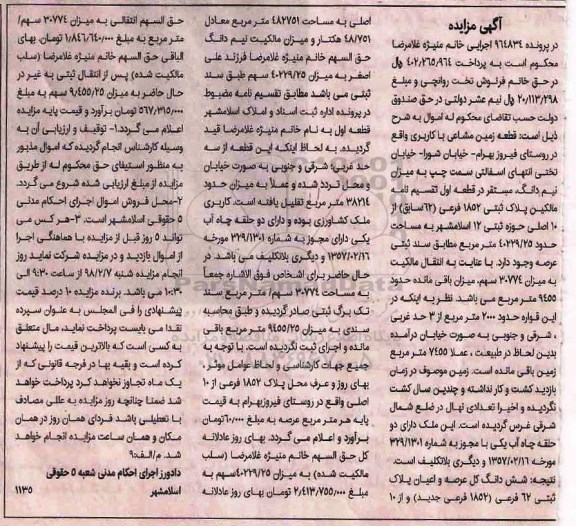 آگهی مزایده
در پرونده ۹۶۴۸۳۴ اجرایی خانم منیژه غلامرضا
محکوم است به پرداخت ۴۰۲/۲۶۵/۹۶۴ ریال
در حق خانم فرنوش تخت روانچی و مبلغ
۲۰/۱۱۳/۲۹۸ ریال نیم عشر دولتی در حق صندوق
دولت حسب تقاضای محکوم له اموال به شرح
ذیل است: قطعه زمین مشاعی با کاربری واقع
در روستای فیروز بهرام- خیابان شورا- خیابان
تختی انتهای اسفالتی سمت چپ به میزان
نیم دانگ، مستقر در قطعه اول تقسیم نامه
مالکین پلاک ثبتی ۱۸۵۲ فرعی (۶۲سابق) از
۱۰ اصلی حوزه ثبتی ۱۲ اسلامشهر به مساحت
حدود ۴۰۲۲۹/۲۵ متر مربع مطابق سند ثبتی
عرصه وجود دارد. با عنایت به انتقال مالکیت
به میزان ۳۰۷۷۴ سهم، میزان باقی مانده حدود
۹۴۵۵ متر مربع می باشد. نظر به اینکه در
این قواره حدود ۲۰۰۰ متر مربع از ۳ حد غربی
، شرقی و جنوبی به صورت خیابان درآمده
بدین لحاظ در طبیعت ، عملا ۷۴۵۵ متر مربع
زمین باقی مانده است. زمین موصوف در زمان
بازدید کشت و کار نداشته و چندین سال کشت
نگردیده و اخیرا تعدادی نهال در ضلع شمال
شرقی غرس گردیده است. این ملک دارای دو
حلقه چاه آب یکی با مجوز به شماره ۳۲۹/۱۳۰۱
مورخه ۱۳۵۷/۰۲/۱۶ و دیگری بلاتکلیف است.
نتیجه: شش دانگ کل عرصه و اعیان پلاک
ثبتی ۶۲ فرعی (۱۸۵۲ فرعی جدید) و از ۱۰
اصلی به مساحت ۴۸۲۷۵۱ متر مربع معادل
۴۸/۷۵۱ هکتار و میزان مالکیت نیم دانگ
حق السهم خانم منیژه غلامرضا فرزند علی
اصغر به میزان ۴۰۲۲۹/۲۵ سهم طبق سند
ثبتی می باشد مطابق تقسیم نامه مضبوط
در پرونده اداره ثبت اسناد و املاک اسلامشهر
قطعه اول به نام خانم منیژه غلامرضا قید
گردیده. به لحاظ اینکه این قطعه از سه
حد غربی؛ شرقی و جنوبی به صورت خیابان
و محل تردد شده و عملاً به میزان حدود
۳۸۲۱۴ متر مربع تقلیل یافته است. کاربری
ملک کشاورزی بوده و دارای دو حلقه چاه آب
یکی دارای مجوز به شماره ۳۲۹/۱۳۰۱ مورخه
۱۳۵۷/۰۲/۱۶ و دیگری بلاتکلیف می باشد. در
حال حاضر برای اشخاص فوق الاشاره جمعاً
به مساحت ۳۰۷۷۴ سهم/ متر مربع سند
تک برگ ثبتی صادر گردیده و طبق محاسبه
سندی به میزان ۹۴۵۵/۲۵ متر مربع باقی
مانده و اجرای ثبت نگردیده است. با توجه به
جمیع جهات کارشناسی و لحاظ عوامل موثر ،
بهای روز و عرف محل پلاک ۱۸۵۲ فرعی از ۱۰
اصلی واقع در روستای فیروزبهرام به قیمت
پایه هر متر مربع عرصه به مبلغ ۶۰/۰۰۰ تومان
برآورد و اعلام می گردد. بهای روز عادلانه
کل حق السهم خانم منیژه غلامرضا (سلب
مالکیت شده) به میزان ۴۰۲۲۹/۲۵سهم به
مبلغ ۲/۴۱۳/۷۵۵/۰۰۰ تومان بهای روز عادلانه
حق السهم انتقالی به میزان ۳۰۷۷۴ سهم/
متر مربع به مبلغ ۱/۸۴۶/۶۴۰/۰۰۰ تومان. بهای
الباقی حق السهم خانم منیژه غلامرضا (سلب
مالکیت شده) پس از انتقال ثبتی به غیر در
حال حاضر به میزان ۹/۴۵۵/۲۵ سهم به مبلغ
۵۶۷/۳۱۵/۰۰۰ تومان برآورد و قیمت پایه مزایده
اعلام می گردد.۱- توقیف و ارزیابی آن به
وسیله کارشناس انجام گردیده که اموال مذبور
به منظور استیفای حق محکوم له از طریق
مزایده از مبلغ ارزیابی شده شروع می گردد.
۲-محل فروش اموال اجرای احکام مدنی
۵ حقوقی اسلامشهر است. ۳-هر کس می
تواند ۵ روز قبل از مزایده با هماهنگی اجرا
از اموال بازدید و در مزایده شرکت نماید روز
انجام مزایده شنبه ۹۸/۲/۷ از ساعت ۹:۳۰ الی
۱۰:۳۰ می باشد. برنده مزایده ۱۰ درصد قیمت
پیشنهادی را فی المجلس به عنوان سپرده
نقدا می بایست پرداخت نماید. مال متعلق
به کسی است که بالاترین قیمت را پیشنهاد
کرده است و بقیه بها در فرجه قانونی که از
یک ماه تجاوز نخواهد کرد پرداخت خواهد
شد ضمنا چنانچه روز مزایده به عللی مصادف
با تعطیلی باشد فردای همان روز در همان
مکان و همان ساعت مزایده انجام خواهد
شد. م/الف:۹
دادورز اجرای احکام مدنی شعبه ۵ حقوقی
اسلامشهر
۱۱۳۵